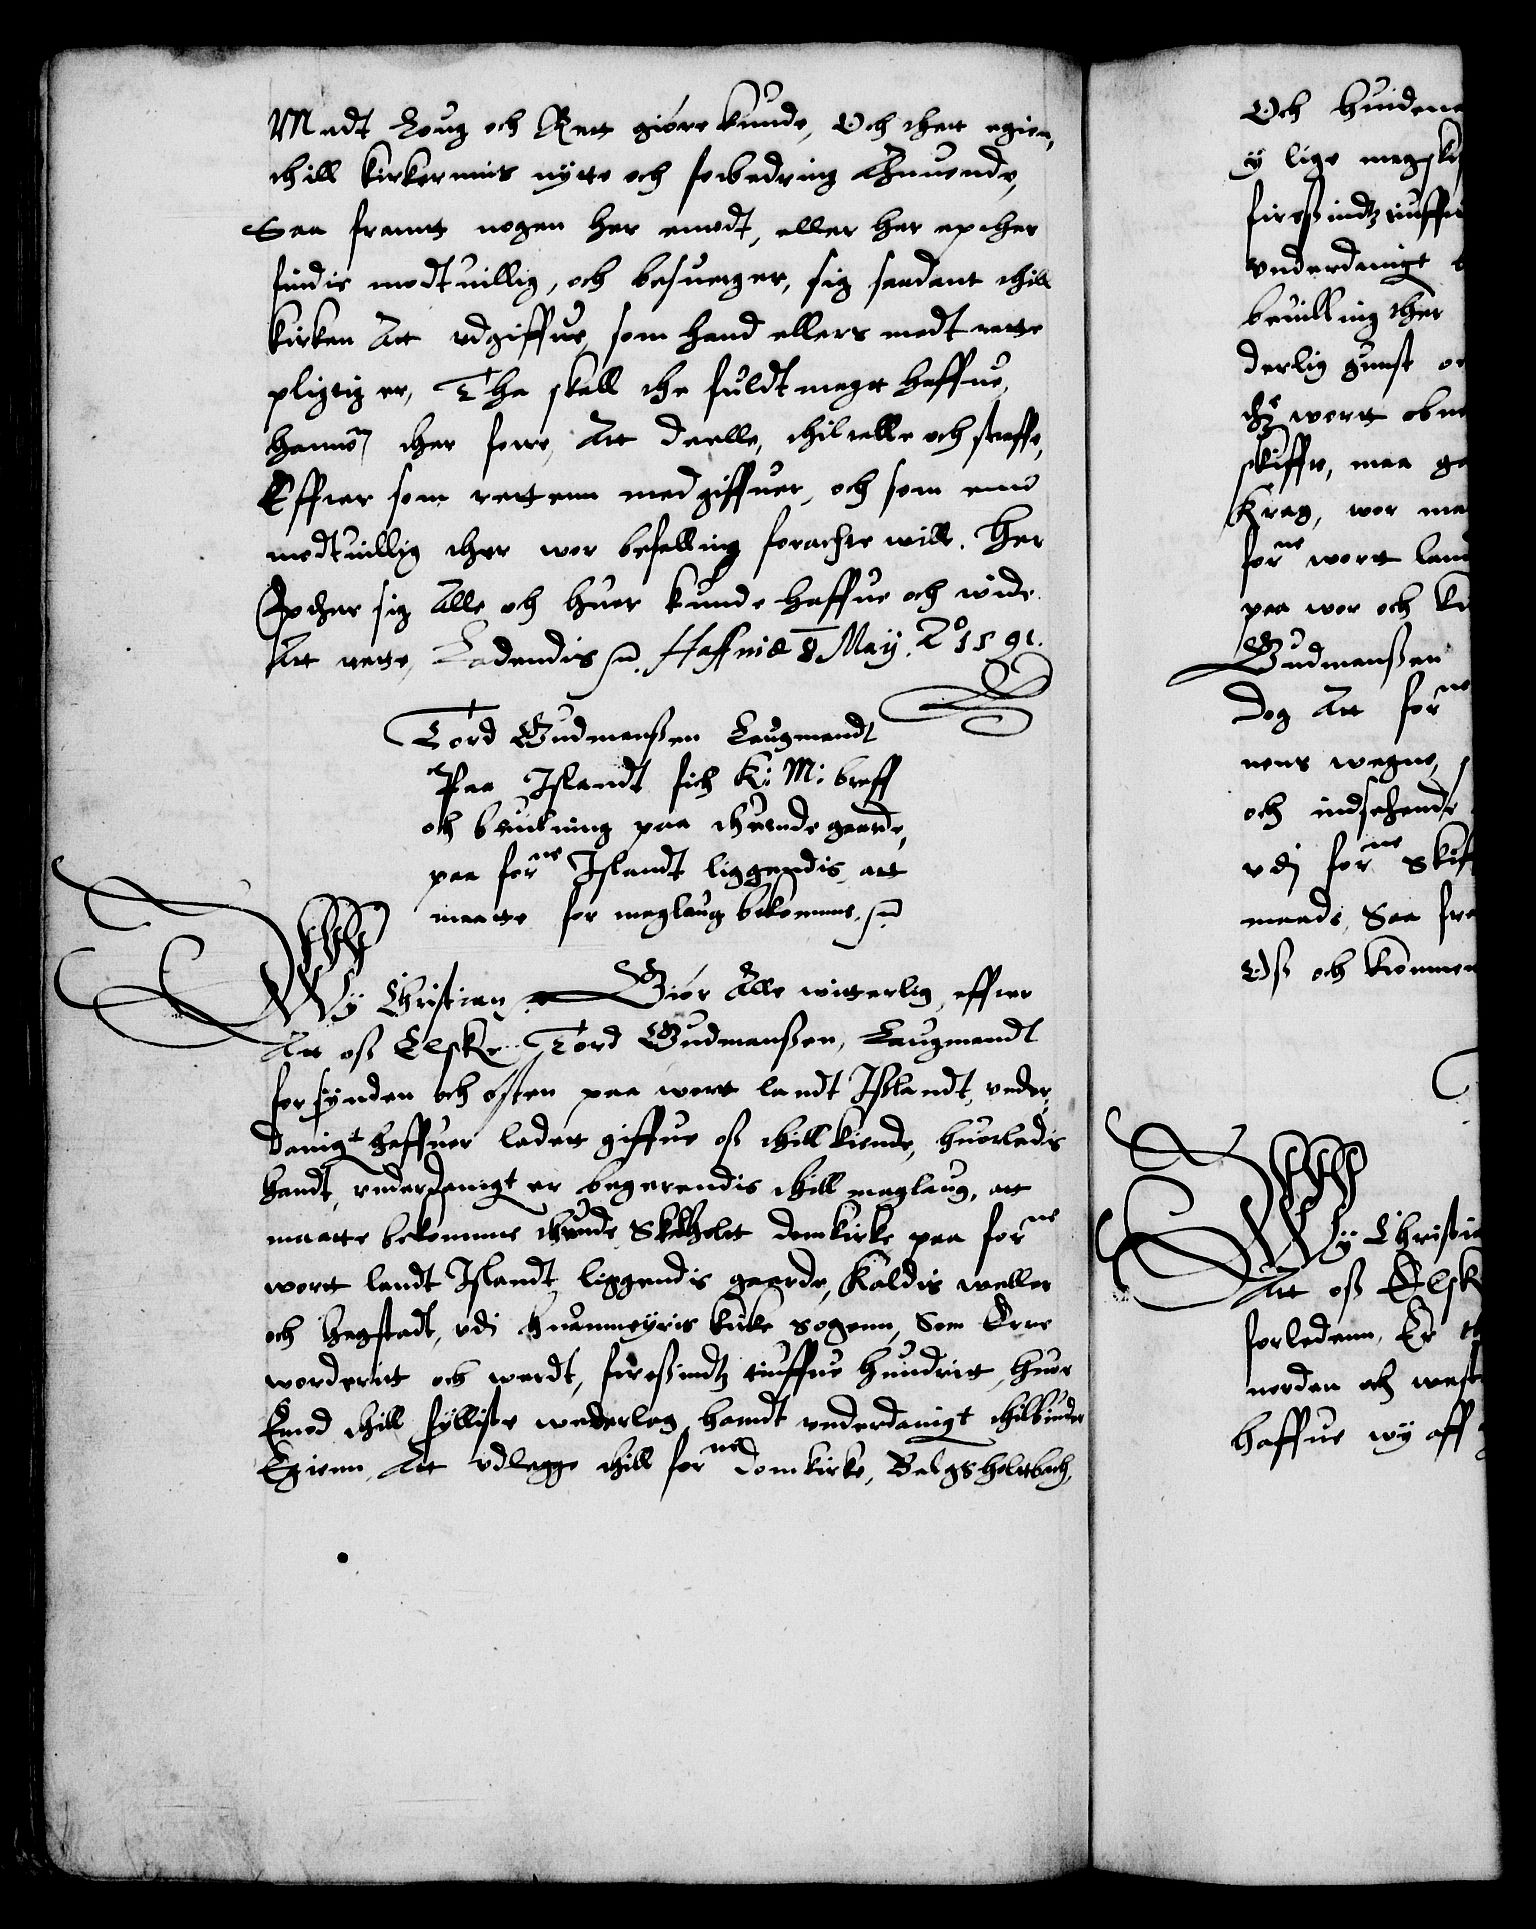 Medt Loug och Rett giøre kunde, Och thett egien,
thill kirkernnis nytte och forbedring Anuende,
Saa framt nogen her emodt, eller her epther
findis modtuillig, och besuerger, sig saadant thill
kirken Att udgiffue, som hand ellers medt rette
pligtig er, Tha skall the fuldt magtt haffue,
hannom ther fore, Att deelle, thiltalle och straffe,
Effter som rettenn medgiffuer, och som enn
modtuillig ther wor befalling forachte will. Her
Epther sig Alle och huer kunde haffue och wide
Att rette, Ladendis Haffniæ 8 May. Aº 1591.
Tord Gudmanßen Laugmandt
Paa Islandt fich K: M: breff
och beuilning paa thuende gaarde,
paa forne Islandt liggendis, att
maatte for mageslaug bekomme.
Wy Christian Giør Alle witterlig, effter
Att oß Elske Tord Gudmanßen, Laugmandt
for synden och osten paa wort landt Ißlandt, under,
danigt haffuer ladett giffue oß thill kiende, huorledis
handt, underdanigt er begerendis thill maglaug, att
maatte bekomme thuende Skalholt domkirke paa forne
wortt landt Islandt liggendis gaarde, Kaldis weller
och hagstadt, udi huammeyris kirke sogenn, Som Erre
worderitt och werdt, firesindtz tiuffue hundritt, huor
Emod thill fylliste wederlag, handt underdanigt thilbinder
Egienn, Att udlegge thill forne domkirke, Belgsholttbach,
Och huidene
y lige
firesindtz tiuffue
underdanigt
beuilling ther
derlig gunst
wortt
skiffte, maa
Krag, wor
forne wortt land
paa wor och
Gudmanßen
Dog Att forne
nens wegne,
och indseende
udj forne
maade, Saa
Oß och kronnen
Wy
Att oß Elsk
forledenn, Er
norden och west
haffue wy aff